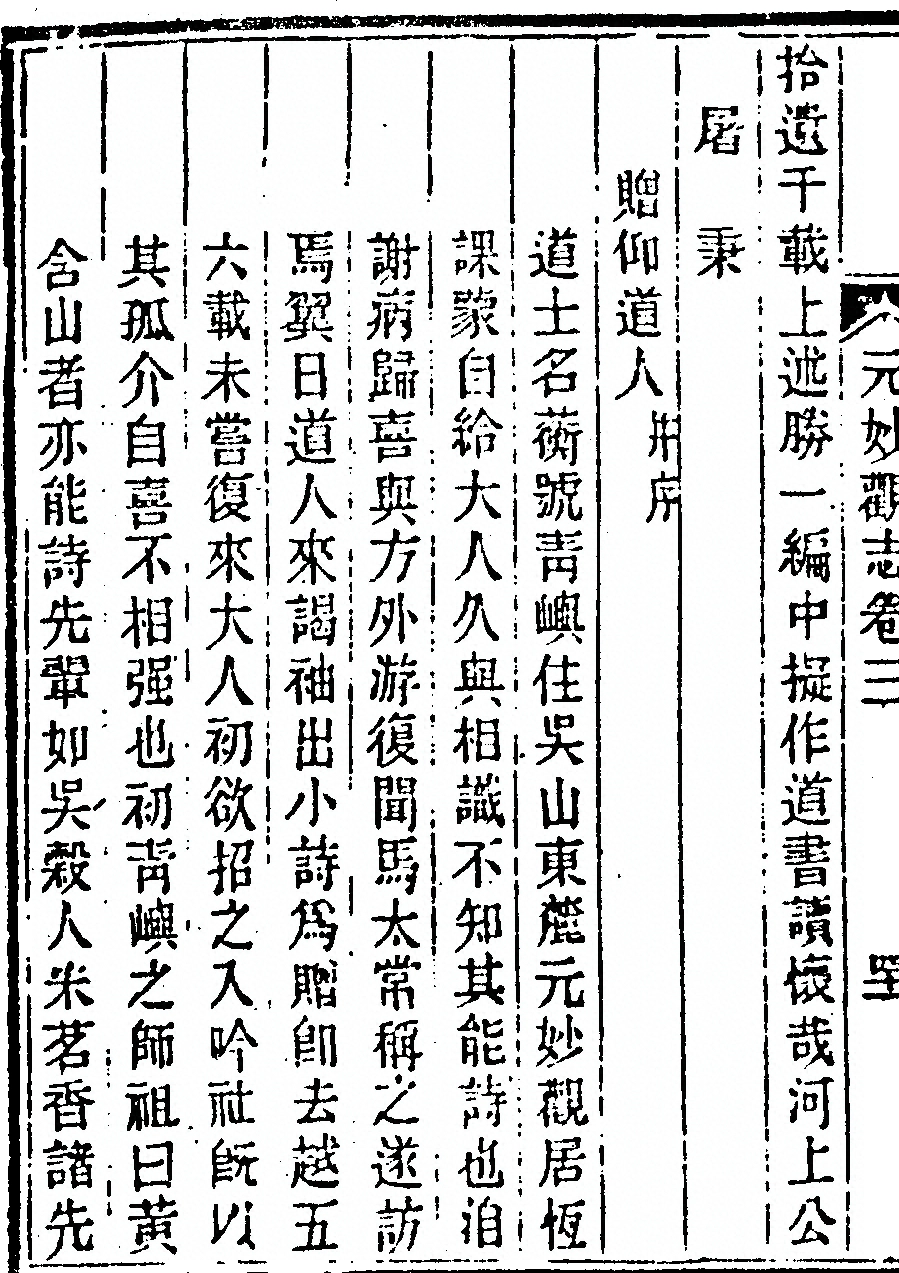 元妙觀志卷三
拾遺千載上述勝一編中擬作道書讀懷哉河上公
屠秉
贈仰道人并序
道士名蘅號青嶼住吳山東麓元妙觀居恆
課蒙自給大人久與相識不知其能詩也洎
謝病歸喜與方外游復聞馬太常稱之遂訪
焉翼日道人來謁袖出小詩爲贈卽去越五
六載未嘗復來大人初欲招之入吟社旣以
其孤介自喜不相强也初青嶼之師祖曰黃
含山者亦能詩先輩如吳穀人朱茗香諸先